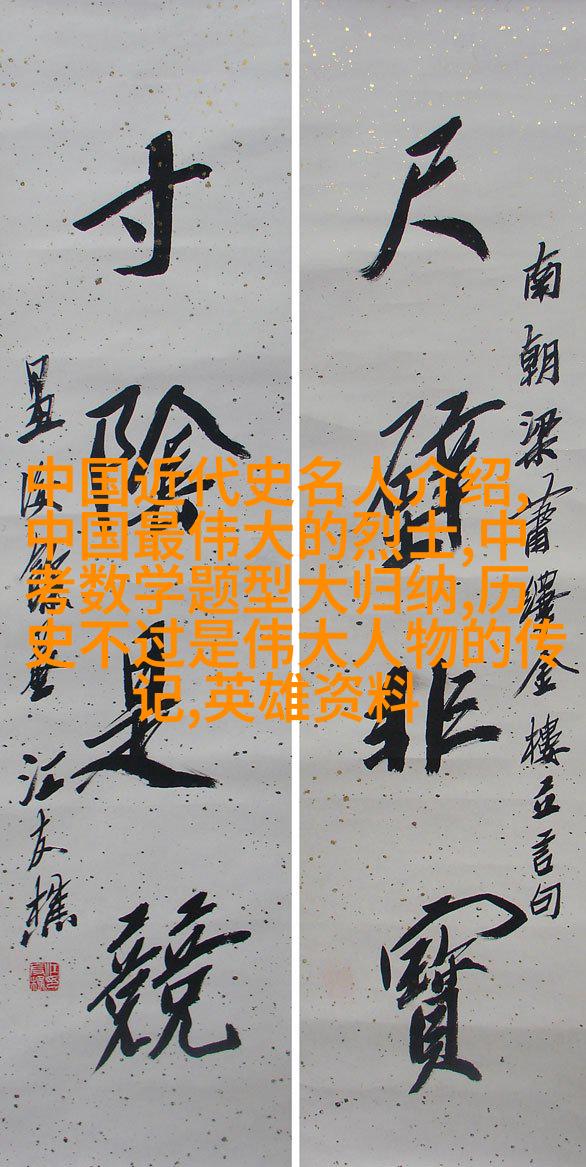 南朝梁蕭繹金樓立言句
尺璧非寶
寸陰是競
汪友樵
中国近代史名人介绍,
中国最伟大的烈士,中
考数学题型大归纳,历
史不过是伟大人物的传
记,英雄资料